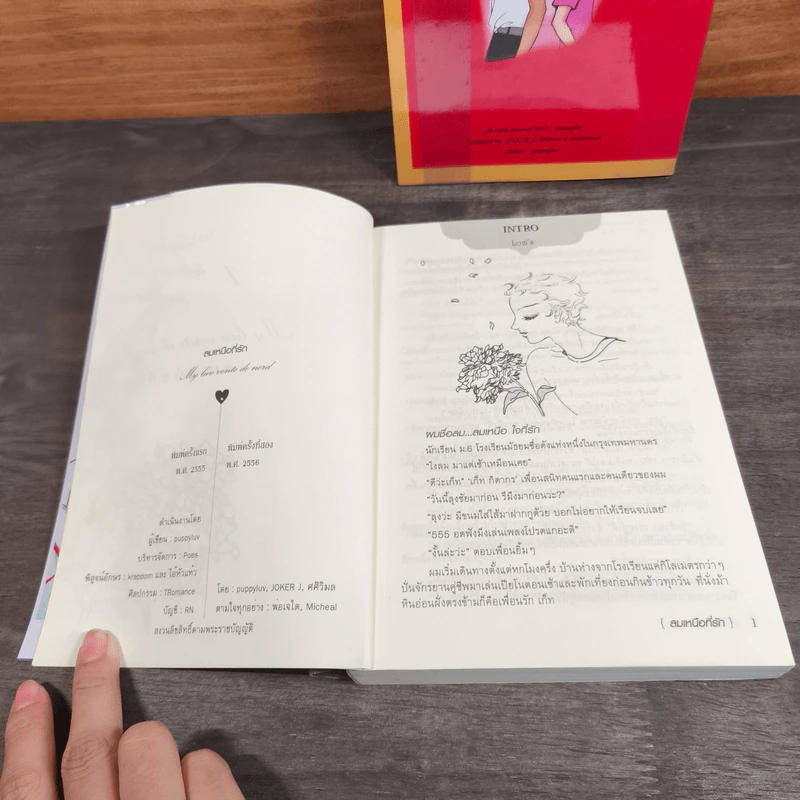 ลมเหนือที่รัก
My luv vento de nord
พิมพ์ครั้งแรก
พ.ศ. 2555
พิมพ์ครั้งที่สอง
พ.ศ. 2556
ดำเนินงานโดย
ผู้เขียน : puppyluv
บริหารจัดการ : Poes
พิสูจน์อักษร : wraooom และ ไอ้หัวแห้ว
ศิลปกรรม : TRomance
บัญชี : RN
โดย : puppyluv, JOKER J, ศศิวิมล
ตามใจทุกอย่าง : พอเจโต, Micheal
สงวนลิขสิทธิ์ตามพระราชบัญญัติ
INTRO
Lom's
ผมชื่อลม...ลมเหนือ ใจที่รัก
นักเรียน ม.6 โรงเรียนมัธยมชื่อดังแห่งหนึ่งในกรุงเทพมหานคร
"ไงลม มาแต่เช้าเหมือนเคย"
"ดีว่ะเก็ท" 'เก็ท กิดากร' เพื่อนสนิทคนแรกและคนเดียวของผม
"วันนี้ลุงชัยมาก่อน รึมึงมาก่อนวะ?"
"ลุงว่ะ มีขนมใส่ไส้มาฝากกูด้วย บอกไม่อยากให้เรียนจบเลย"
"555 อดฟังมึงเล่นเพลงโปรดแกอะดิ"
"งั้นล่ะว่ะ" ตอบเพื่อนยิ้มๆ
ผมเริ่มเดินทางตั้งแต่หกโมงครึ่ง บ้านห่างจากโรงเรียนแค่กิโลเมตรกว่าๆ
ปั่นจักรยานคู่ชีพมาเล่นเปียโนตอนเช้าและพักเที่ยงก่อนกินข้าวทุกวัน ที่นั่งม้า
หินอ่อนฝั่งตรงข้ามก็คือเพื่อนรัก เก็ท
{ ลมเหนือที่รัก } 1